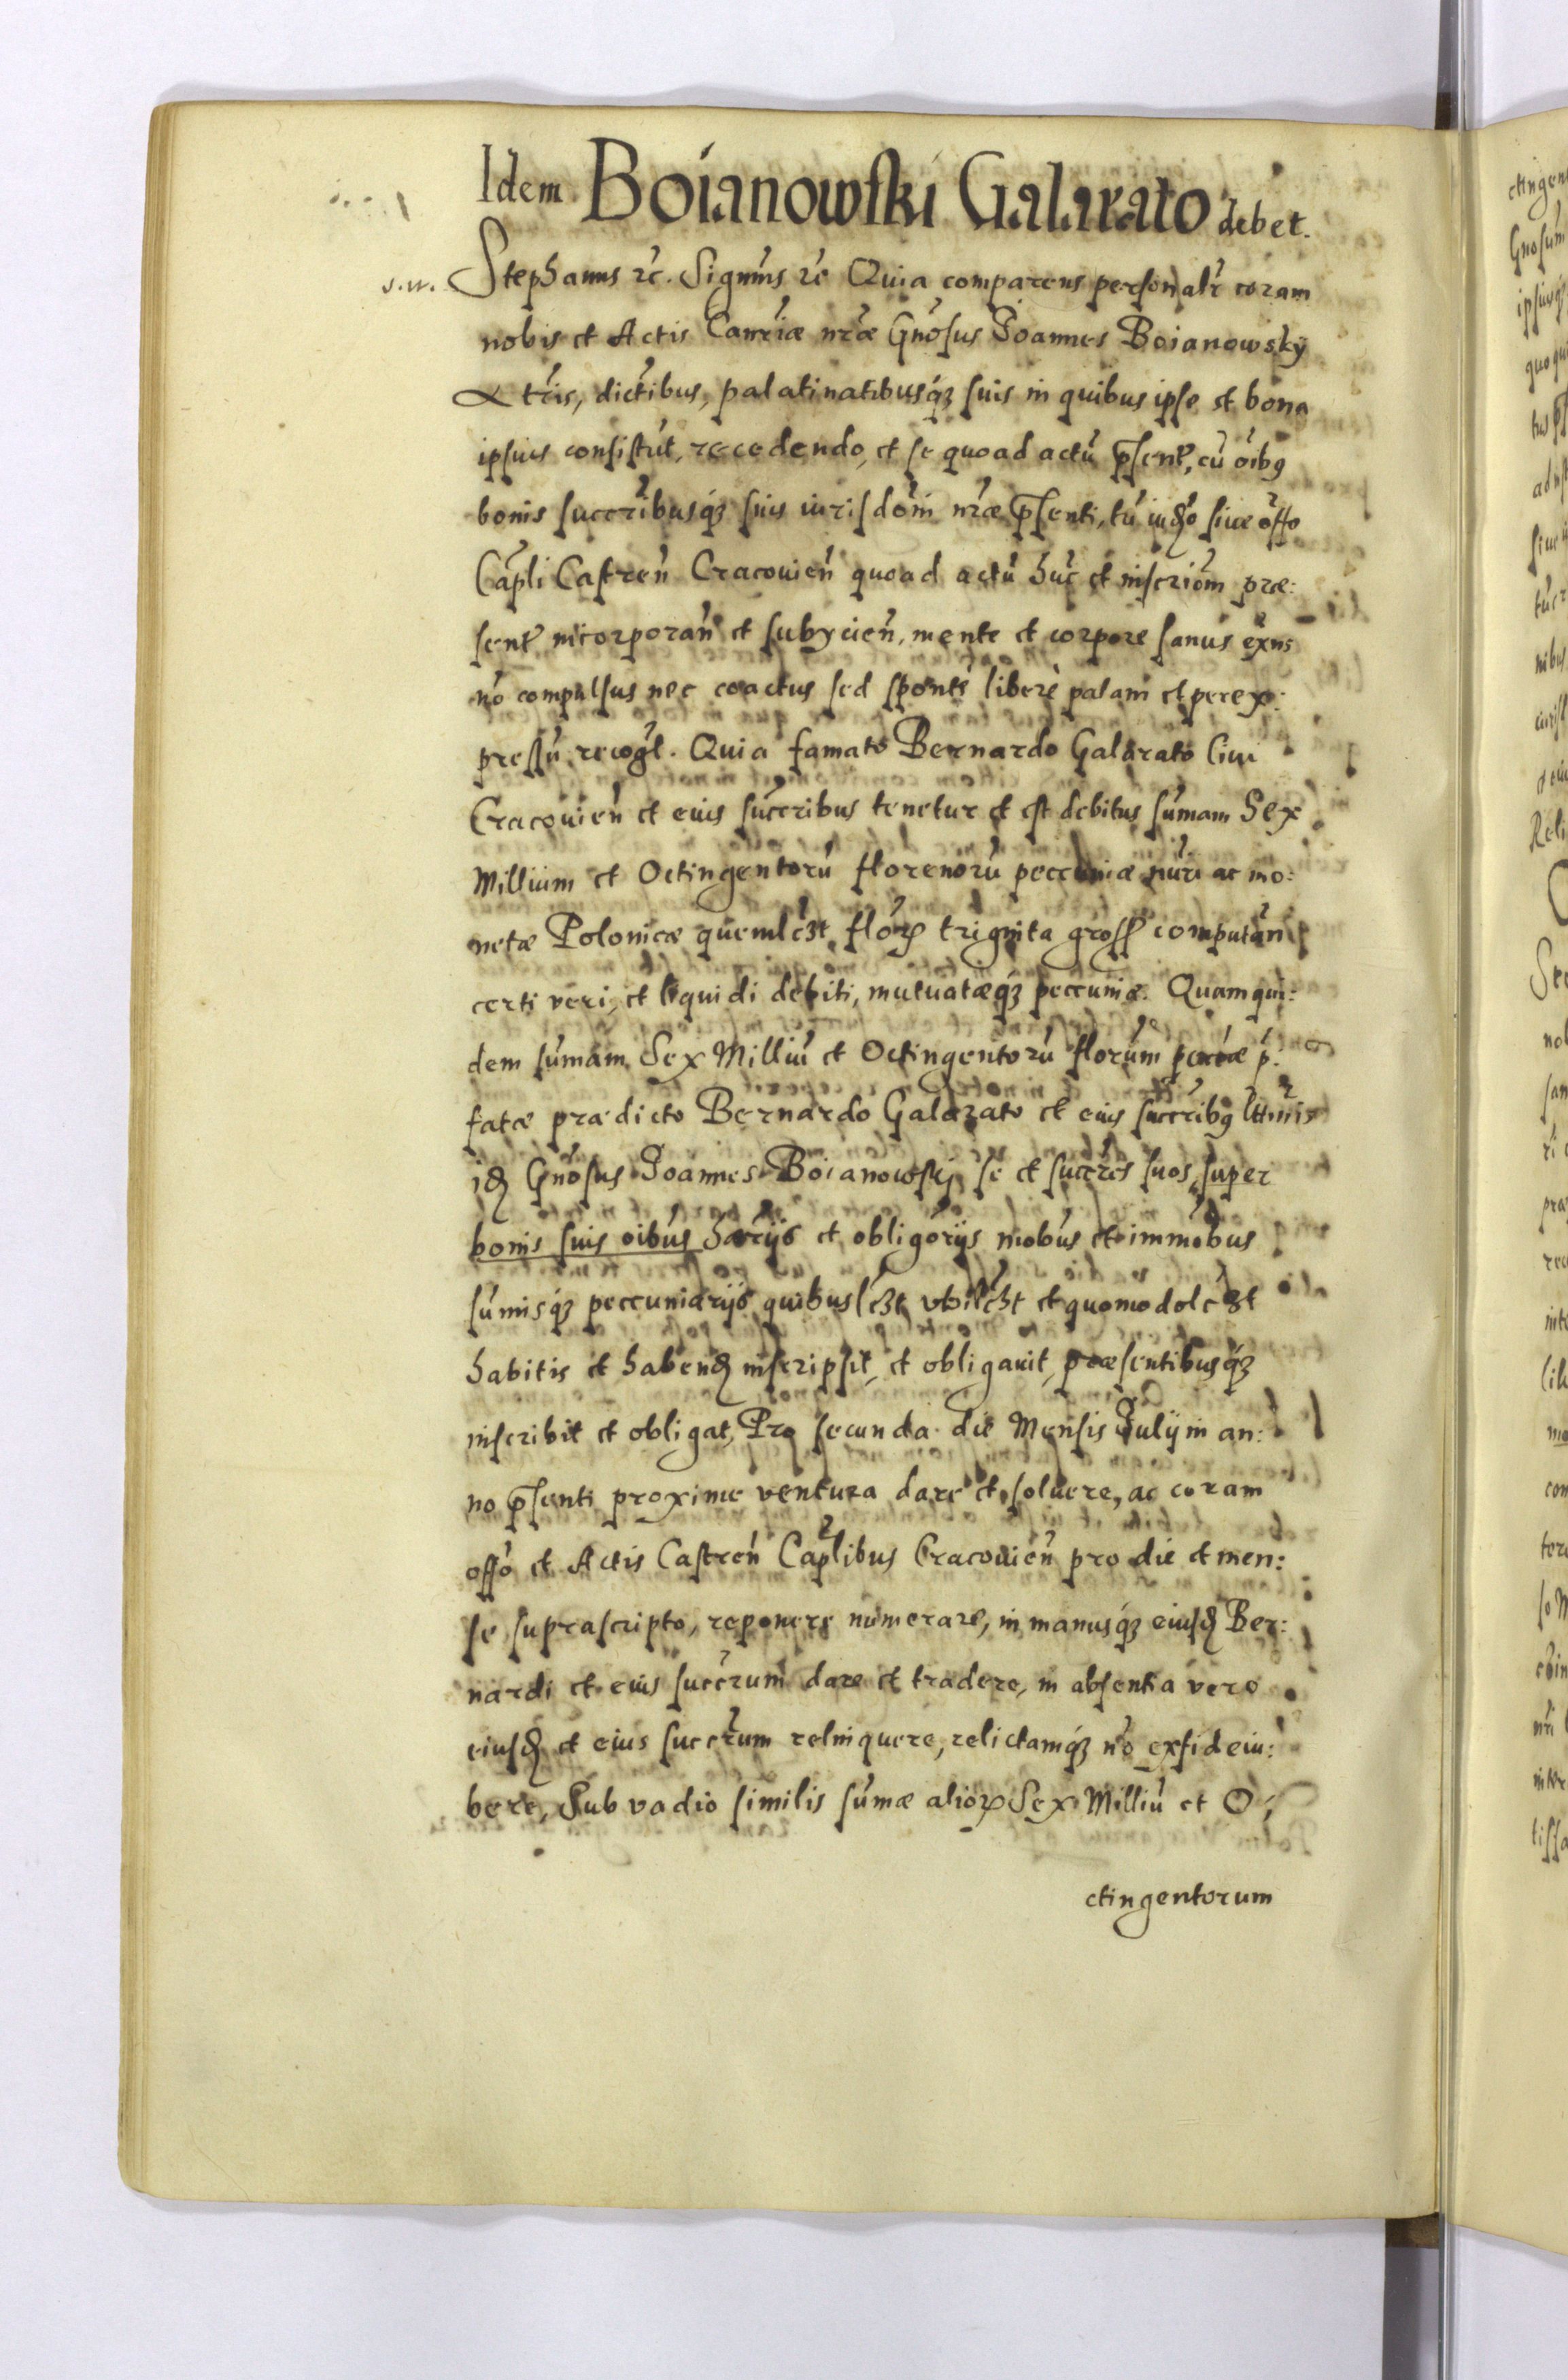 Idem Boianowski Galarato debet.
Stephanus rc̃. Signũs rẽ Quia comparens personalr̃ coram
nobis et Actis Canc̃riæ nr̃æ Gnõsus Joannes Boianowsky
A tr̃is, dictibus, palatinatibusq́ꝫ suis in quibus ipse et bona
ipsius consistũt, recedendo, et se quoad actũ p̃senẽ, cũ oĩbꝯ
bonis succr̃ibusq́ꝫ suis iurisdõni nr̃æ p̃senti, tũ iudo siue offo
Cap̃li Castreñ Cracouieñ quoad actũ hũc et inscriõm præ:
sent̃ incorporañ et subyicieñ, mente et corpore sanus exñs
nõ compulsus nec coactus sed spontè liberè palam et perex:
pressũ recogt̃. Quia famato Bernardo Galarato Ciui
Cracouieñ et eius succr̃ibus tenetur et est debitus sum̃am Sex
Millium et Octingentorũ florenorũ peccuniæ nũri ac mo:
netæ Polonicæ quemlc̃ꝫt flor̃ꝝ triginta gross̃ computañ
certi veri, et liquidi debiti, mutuatæq́ꝫ peccuniæ. Quamqui:
dem sum̃am Sex Milliũ et Octingentorũ florũm pecc̃iæ p̃:
fatæ prædicto Bernardo Galarato et eius succr̃ibꝯ lttimis
id Gnõsus Joannes Boianowskj se et succr̃es suos super
bonis suis oĩbus hær̃ijs et obligõrijs mobũs et immobũs
sum̃isq́ꝫ peccuniarijs quibuslc̃ꝫt vbilc̃ꝫt et quomodolc̃ꝫt
habitis et habend inscripsit, et obligauit, præsentibusq́ꝫ
inscribit et obligat, Pro secunda die Mensis Julij in an:
no p̃senti proxime ventura dare et soluere, ac coram
offo et Actis Castreñ Cap̃libus Cracouieñ pro die et men:
se suprascripto, reponere numerare, in manusq́ꝫ eiusd Ber:
nardi et eius succr̃um dare et tradere, in absentia vero
eiusd et eius succr̃um relinquere, relictamq́ꝫ nõ exfideiu:
bere, Sub vadio similis sum̃æ alioꝝ Sex Milliũ et O:
ctingentorum